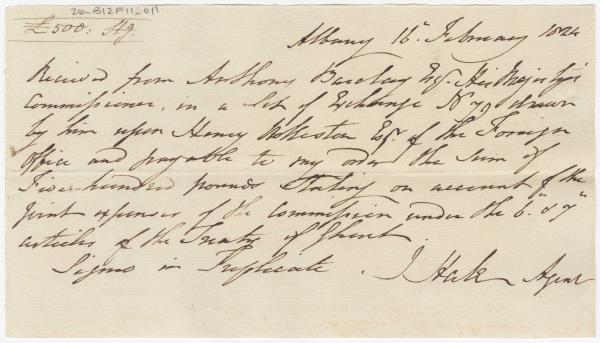 20-B12F11-011
£500: Stg.
Albany 16th February 1824
Received from Anthony Barclay Esq. His Majesty's
Commissioner, in a Set of Exchange No 79 drawn
by him upon Henry Rolleston Esq. of the Foreign
Office and payable to my order the Sum of
Five hundred pounds Sterling on account of the
joint expenses of the Commission under the 6" & 7"
articles of the Treaty of Ghent.
Signed in Triplicate. J Hale Agent